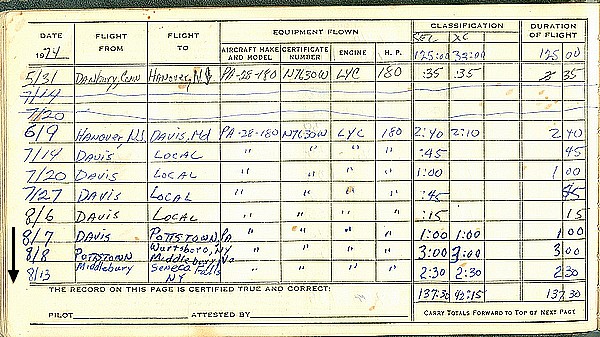 DATE FLIGHT FROM FLIGHT TO EQUIPMENT FLOWN CLASSIFICATION DURATION OF FLIGHT
1974 AIRCRAFT MAKE AND MODEL CERTIFICATE NUMBER ENGINE H. P. SEL XC
125:00 32:00 125 00
5/31 Danbury, Conn Hanover, N.J. PA-28-180 N7630W LYC 180 :35 :35 35
7/14
7/20
6/9 Hanover, N.J. Davis, Md PA-28-180 N7630W LYC 180 2:40 2:10 2 40
7/14 Davis Local " " " " :45 45
7/20 Davis Local " " " " 1:00 1 00
7/27 Davis Local " " " " :45 45
8/6 Davis Local " " " " :15 15
8/7 Davis Pottstown, Pa " " " " 1:00 1:00 1 00
8/8 Pottstown Wurtsboro, NY Middlebury, " " " " 3:00 3:00 3 00
8/13 Middlebury Seneca Falls NY " " " " 2:30 2:30 2 30
THE RECORD ON THIS PAGE IS CERTIFIED TRUE AND CORRECT: 137:30 42:15 137 30
PILOT ATTESTED BY CARRY TOTALS FORWARD TO TOP OF NEXT PAGE